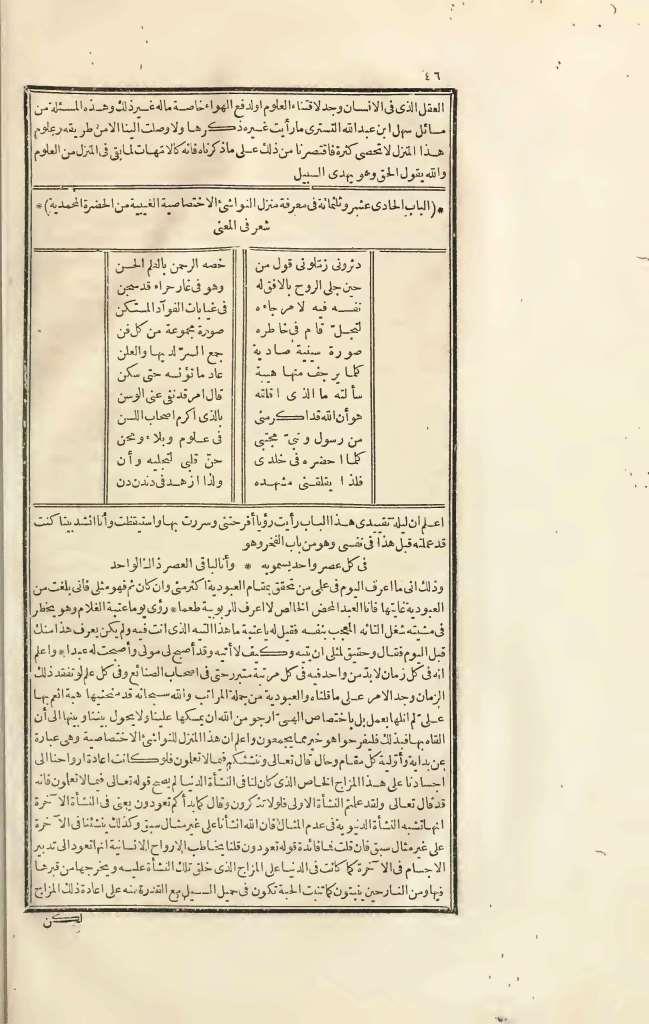 ٤٦
العقل الذى فى الانسان وجد لاقتناء العلوم اولدفع الهواء خاصة ماله غير ذلك وهذه المسئلة من
مسائل سهل ابن عبد الله التسترى ما رأيت غيره ذكرها ولا وصلت الينا الا من طريقه وعلوم
هذا المنزل لا تحصى كثرة فاقتصرنا من ذلك على ما ذكرناه فانه كالامهات لما بقى فى المنزل من العلوم
والله يقول الحق وهو يهدى السبيل
* (الباب الحادى عشر وثلثمائة فى معرفة منزل النواشئ الاختصاصية الغيبية من الحضرة المحمدية) *
شعر فى المعنى
دثرونى زملونى قول من خصه الرحمن بالعلم الحسن
حين جلى الروح بالافق له وهو فى غار حراء قد سجن
نفسه فيه لامر جاءه فى غيابات الفؤاد المستكن
لتجل قام فى خاطره صورة مجموعة من كل فن
صورة سينية صادية جمع السر لديها والعلن
كلما يرجف منها هيبة عاد ما تؤنسه حتى سكن
سألته ما الذى اقلقه قال امر قد نفى عنى الوسن
هو أن الله قد اكرمنى بالذى اكرم اصحاب اللسن
من رسول ونبى مجتبى فى علوم وبلاء ومحن
كلما احضره فى خلدى حن قلبى لتجليه وأن
فلذا يقلقنى مشهده ولذا ازهد فى دندن دن
اعلم ان ليلة تقييدى هذا الباب رأيت رؤيا أفرحتنى وسررت بها واستيقظت وأنا انشد بيتا كنت
قد عملته قبل هذا فى نفسى وهو من باب الفخر وهو
فى كل عصر واحد يسمو به * وأنا لباقى العصر ذاك الواحد
وذلك انى ما اعرف اليوم فى علمى من تحقق بمقام العبودية اكثر منى وان كان ثم فهو مثلى فانى بلغت من
العبودية غايتها فانا العبد المحض الخالص لا اعرف للربوبية طعما * رؤى يوما عتبة الغلام وهو يخطر
فى مشيته شغل التائه المعجب بنفسه فقيل له يا عتبة ما هذا التيه الذى انت فيه ولم يكن يعرف هذا منك
قبل اليوم فقال وحقيق لمثلى ان يتيه وكيف لا أتيه وقد أصبح لى مولى وأصبحت له عبدا * واعلم
انه فى كل زمان لا بد من واحد فيه فى كل مرتبة متبرز حتى فى اصحاب الصنائع وفى كل علم لو تفقد ذلك
الزمان وجد الامر على ما قلناه والعبودية من جملة المراتب والله سبحانه قد منحنيها هبة انعم بها
على لم انلها بعمل بل باختصاص الهى ارجو من الله ان يمسكها علينا ولا يحول بيننا وبينها الى أن
القاه بها فبذلك فليفرحوا هو خير مما يجمعون واعلم ان هذا المنزل للنواشئ الاختصاصية وهى عبارة
عن بداية وأولية كل مقام وحال قال تعالى وننشئكم فيما لا تعلمون فلو كانت اعادة ارواحنا الى
اجسادنا على هذا المزاج الخاص الذى كان لنا فى النشأة الدنيا لم يصح قوله تعالى فيما لا تعلمون فانه
قد قال تعالى ولقد علمتم النشأة الاولى فلولا تذكرون وقال كما بدأكم تعودون يعنى فى النشأة الآخرة
انها تشبه النشأة الدنيوية فى عدم المثال فان الله انشأنا على غير مثال سبق وكذلك ينشئنا فى الآخرة
على غير مثال سبق فان قلت فما فائدة قوله تعودون قلنا يخاطب الارواح الانسانية انها تعود الى تدبير
الاجسام فى الآخرة كما كانت فى الدنيا على المزاج الذى خلق تلك النشأة عليه ويخرجها من قبرها
فيها ومن النار حين ينبتون كما تنبت الحبة تكون فى حميل السيل مع القدرة منه على اعادة ذلك المزاج
لكن